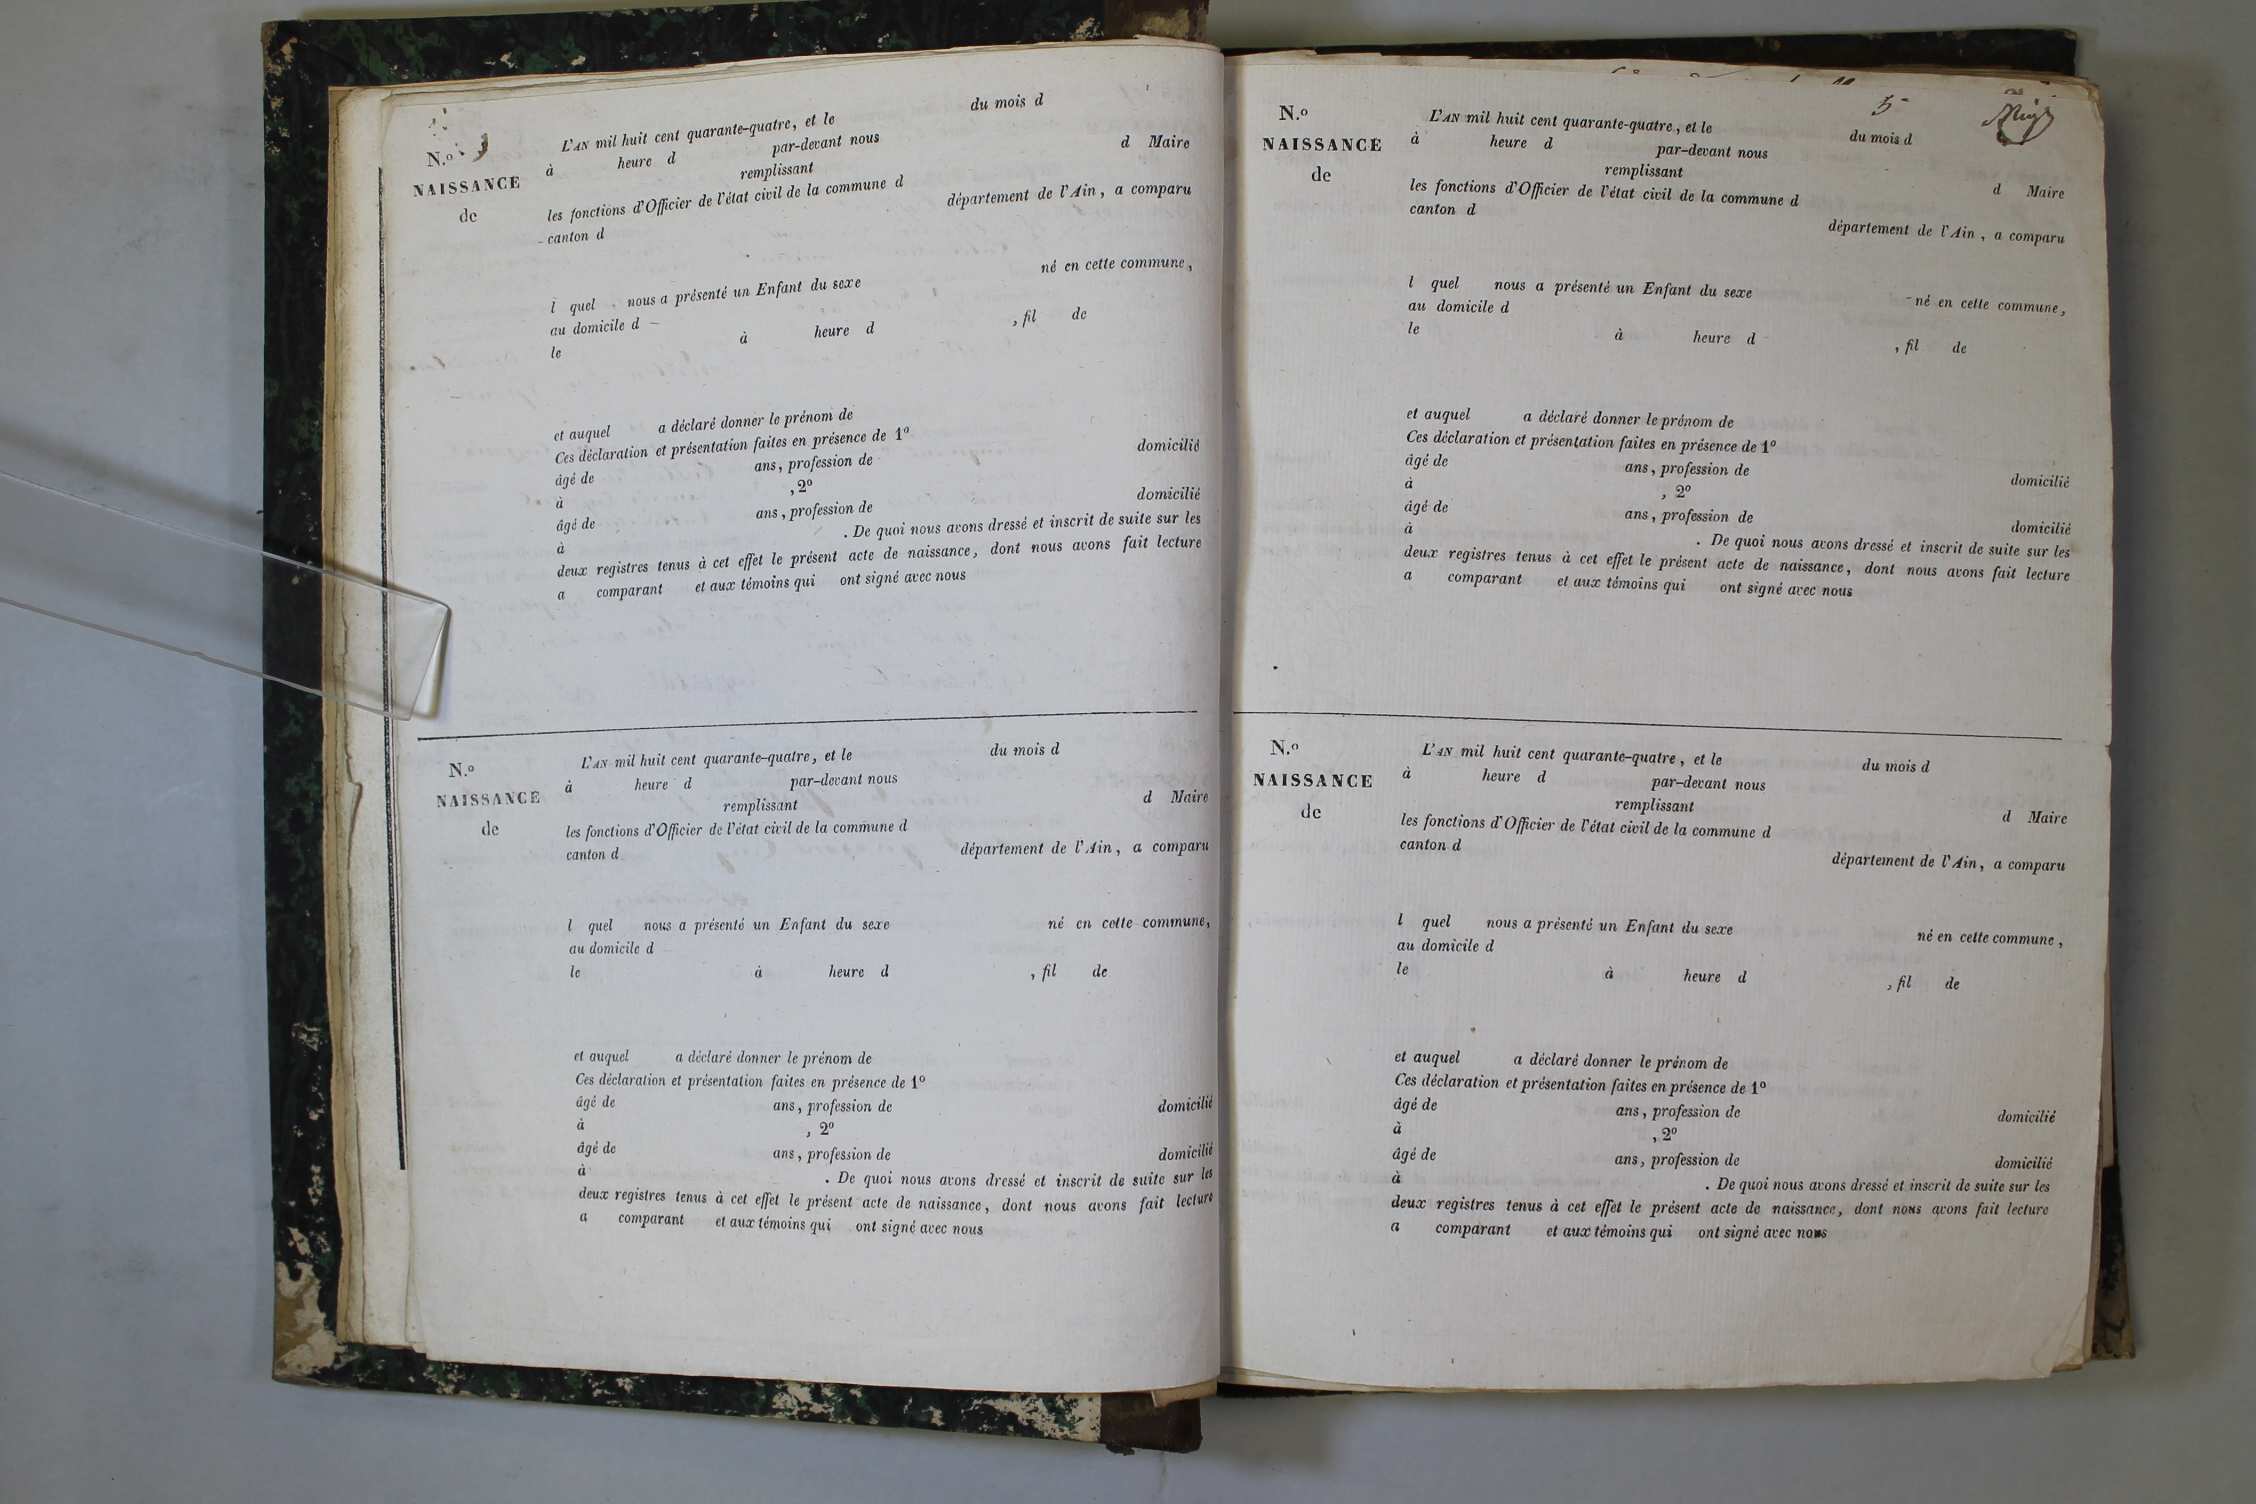 N.º
NAISSANCE
de
L'AN mil huit cent quarante-quatre, et le du mois d
à heure d par-devant nous
remplissant d Maire
les fonctions d'Officier de l'état civil de la commune d
canton d département de l'Ain, a comparu
l quel nous a présenté un Enfant du sexe né en cette commune,
au domicile d
le à heure d , fil de
et auquel a déclaré donner le prénom de
Ces déclaration et présentation faites en présence de 1º
âgé de ans, profession de domicilié
à , 2º
âgé de ans, profession de domicilié
à . De quoi nous avons dressé et inscrit de suite sur les
deux registres tenus à cet effet le présent acte de naissance, dont nous avons fait lecture
a comparant et aux témoins qui ont signé avec nous
N.º
NAISSANCE
de
L'AN mil huit cent quarante-quatre, et le du mois d
à heure d par-devant nous
remplissant d Maire
les fonctions d'Officier de l'état civil de la commune d
canton d département de l'Ain, a comparu
l quel nous a présenté un Enfant du sexe né en cette commune,
au domicile d
le à heure d , fil de
et auquel a déclaré donner le prénom de
Ces déclaration et présentation faites en présence de 1º
âgé de ans, profession de domicilié
à , 2º
âgé de ans, profession de domicilié
à . De quoi nous avons dressé et inscrit de suite sur les
deux registres tenus à cet effet le présent acte de naissance, dont nous avons fait lecture
a comparant et aux témoins qui ont signé avec nous
5
N.º
NAISSANCE
de
L'AN mil huit cent quarante-quatre, et le du mois d
à heure d par-devant nous
remplissant d Maire
les fonctions d'Officier de l'état civil de la commune d
canton d département de l'Ain, a comparu
l quel nous a présenté un Enfant du sexe né en cette commune,
au domicile d
le à heure d , fil de
et auquel a déclaré donner le prénom de
Ces déclaration et présentation faites en présence de 1º
âgé de ans, profession de domicilié
à , 2º
âgé de ans, profession de domicilié
à . De quoi nous avons dressé et inscrit de suite sur les
deux registres tenus à cet effet le présent acte de naissance, dont nous avons fait lecture
a comparant et aux témoins qui ont signé avec nous
N.º
NAISSANCE
de
L'AN mil huit cent quarante-quatre, et le du mois d
à heure d par-devant nous
remplissant d Maire
les fonctions d'Officier de l'état civil de la commune d
canton d département de l'Ain, a comparu
l quel nous a présenté un Enfant du sexe né en cette commune,
au domicile d
le à heure d , fil de
et auquel a déclaré donner le prénom de
Ces déclaration et présentation faites en présence de 1º
âgé de ans, profession de domicilié
à , 2º
âgé de ans, profession de domicilié
à . De quoi nous avons dressé et inscrit de suite sur les
deux registres tenus à cet effet le présent acte de naissance, dont nous avons fait lecture
a comparant et aux témoins qui ont signé avec nous